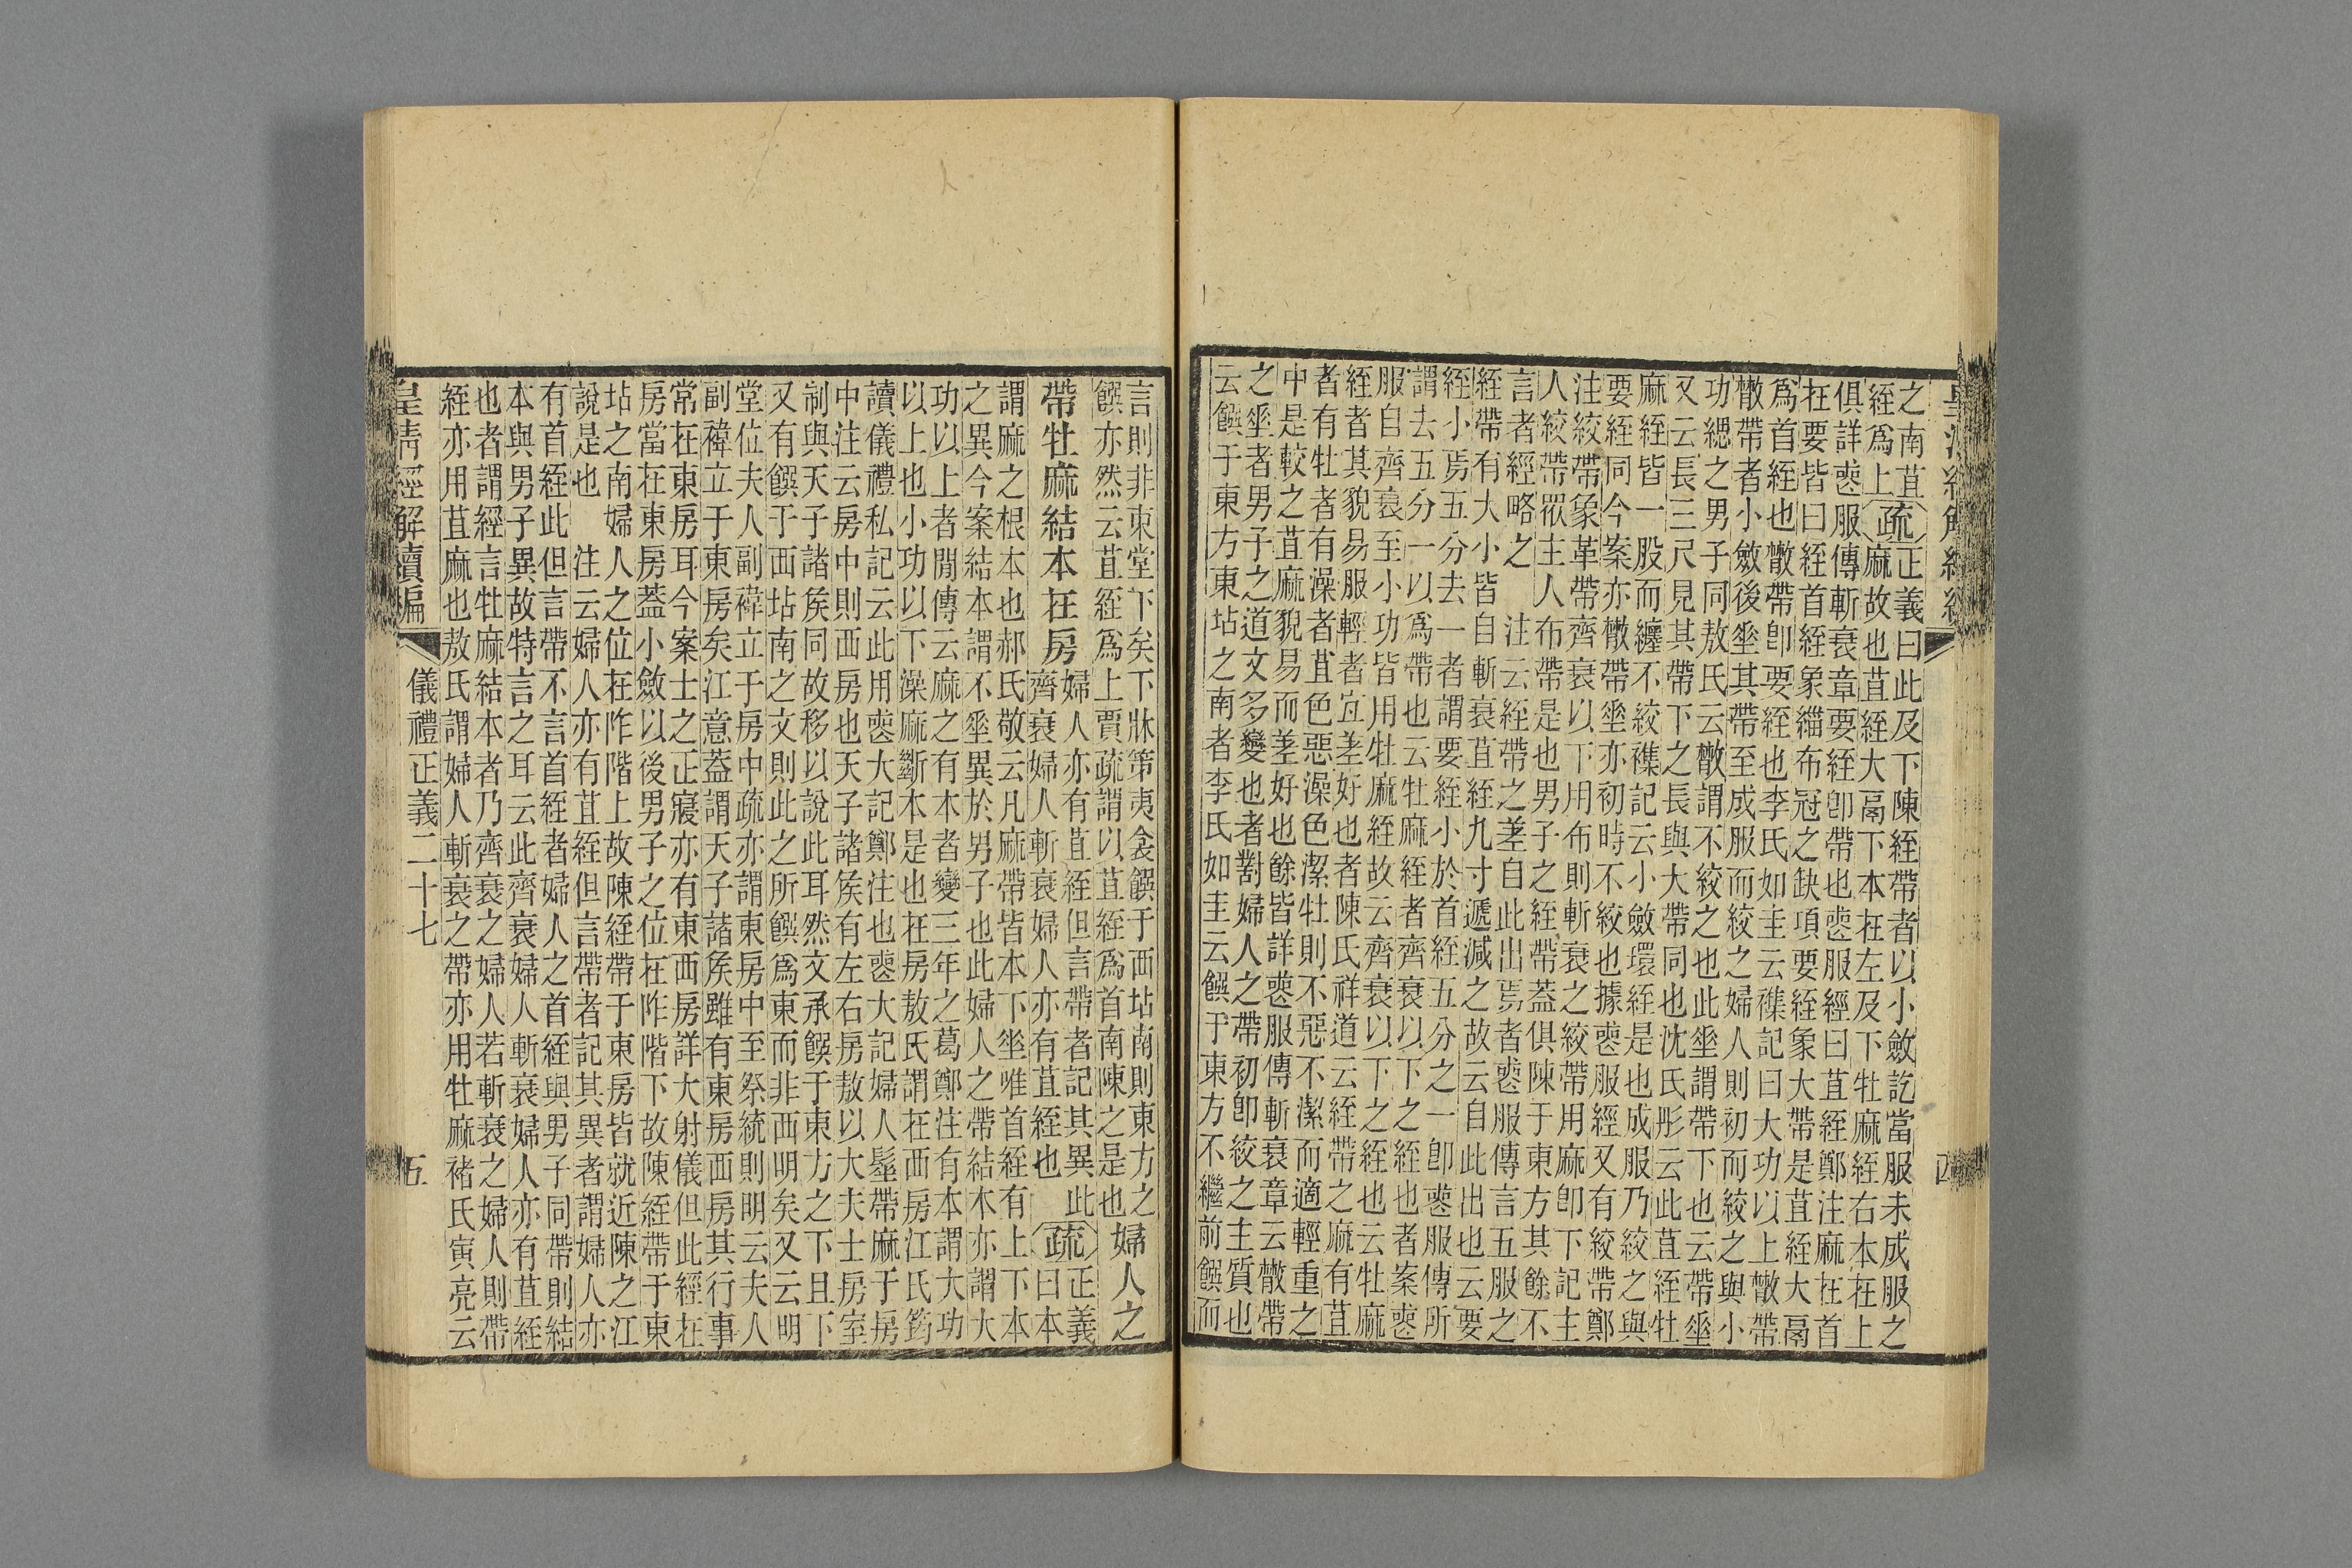 皇清經解續編
四
之南苴
絰爲上
疏
正義曰此及下陳絰帶者以小斂訖當服未成服之
麻故也苴絰大鬲下本在左及下牡麻絰右本在上
俱詳喪服傳斬衰章要絰卽帶也喪服經曰苴絰鄭注麻在首
在要皆曰絰首絰象緇布冠之缺項要絰象大帶是苴絰大鬲
爲首絰也散帶卽要絰也李氏如圭云襍記曰大功以上散帶
散帶者小斂後垂其帶至成服而絞之婦人則初而絞之與小
功緦之男子同敖氏云散謂不絞之也此垂謂帶下也云帶垂
又云長三尺見其帶下之長與大帶同也沈氏彤云此苴絰牡
麻絰皆一股而纏不絞襍記云小斂環絰是也成服乃絞之與
要絰同今案亦散帶垂亦初時不絞也據喪服經又有絞帶鄭
注絞帶象革帶齊衰以下用布則斬衰之絞帶用麻卽下記主
人絞帶眾主人布帶是也男子之絰帶蓋俱陳于東方其餘不
言者經略之　注云絰帶之差自此出焉者喪服傳言五服之
絰帶有大小皆自斬衰苴絰九寸遞減之故云自此出也云要
絰小焉五分去一者謂要絰小於首絰五分之一卽喪服傳所
謂去五分一以爲帶也云牡麻絰者齊衰以下之絰也者案喪
服自齊衰至小功皆用牡麻絰故云齊衰以下之絰也云牡麻
絰者其貌易服輕者宜差好也者陳氏祥道云絰帶之麻有苴
者有牡者有澡者苴色惡澡色潔牡則不惡不潔而適輕重之
中是較之苴麻貌易而差好也餘皆詳喪服傳斬衰章云散帶
之垂者男子之道文多變也者對婦人之帶初卽絞之主質也
云饌于東方東坫之南者李氏如圭云饌于東方不繼前饌而
言則非東堂下矣下牀笫夷衾饌于西坫南則東方之
饌亦然云苴絰爲上賈疏謂以苴絰爲首南陳之是也
婦人之
帶牡麻結本在房
婦人亦有苴絰但言帶者記其異此
齊衰婦人斬衰婦人亦有苴絰也
疏
正義
曰本
謂麻之根本也郝氏敬云凡麻帶皆本下垂唯首絰有上下本
之異今案結本謂不垂異於男子也此婦人之帶結本亦謂大
功以上者閒傳云麻之有本者變三年之葛鄭注有本謂大功
以上也小功以下澡麻斷本是也在房敖氏謂在西房江氏筠
讀儀禮私記云此用喪大記鄭注也喪大記婦人髽帶麻于房
中注云房中則西房也天子諸侯有左右房敖以大夫士房室
制與天子諸侯同故移以說此耳然文承饌于東方之下且下
又有饌于西坫南之文則此之所饌爲東而非西明矣又云明
堂位夫人副褘立于房中疏亦謂東房中至祭統則明云夫人
副褘立于東房矣江意蓋謂天子諸侯雖有東房西房其行事
常在東房耳今案士之正寢亦有東西房詳大射儀但此經在
房當在東房蓋小斂以後男子之位在阼階下故陳絰帶于東
坫之南婦人之位在阼階上故陳絰帶于東房皆就近陳之江
說是也　注云婦人亦有苴絰但言帶者記其異者謂婦人亦
有首絰此但言帶不言首絰者婦人之首絰與男子同帶則結
本與男子異故特言之耳云此齊衰婦人斬衰婦人亦有苴絰
也者謂經言牡麻結本者乃齊衰之婦人若斬衰之婦人則帶
絰亦用苴麻也敖氏謂婦人斬衰之帶亦用牡麻褚氏寅亮云
皇清經解續編
儀禮正義二十七
五